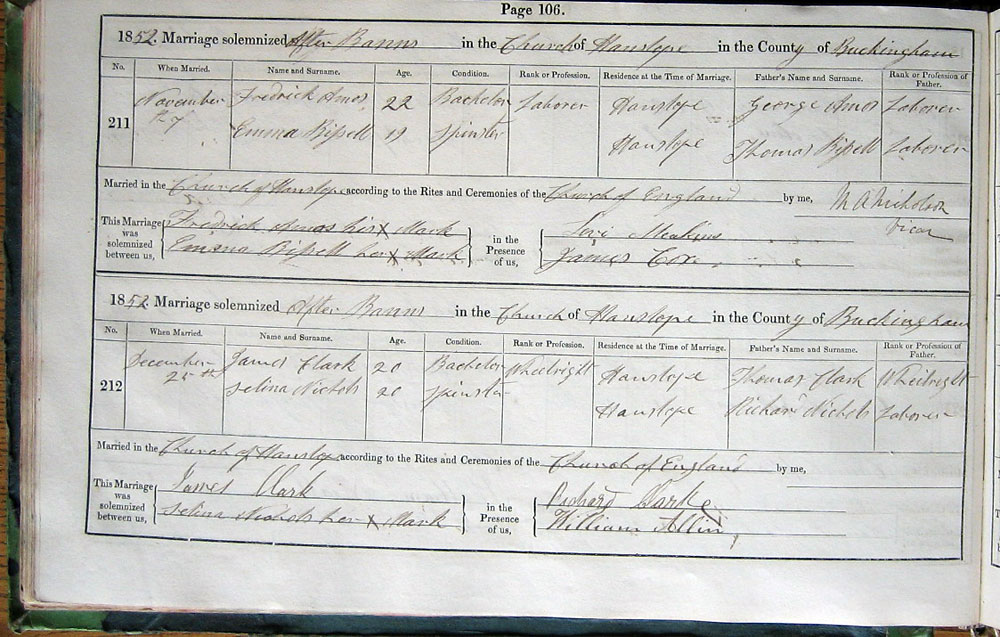 Page 106.
1852. Marriage solemnized After Banns in the Church of Hanslope in the County of Buckingham
No. When Married. Name and Surname. Age. Condition. Rank or Profession. Residence at the Time of Marriage. Father's Name and Surname. Rank or Profession of Father.
November Fredrick Amos 22 Bachelor Laborer Hanslope George Amos Laborer
211 Emma Bissell 19 Spinster Hanslope Thomas Bissell Laborer
Married in the Church of Hanslope according to the Rites and Ceremonies of the Church of England by me, M A Nicholson
Vicar
This Marriage was solemnized between us, Fredrick Amos his X Mark in the Presence of us, Levi Meakins
Emma Bissell her X Mark James Cox
1852. Marriage solemnized After Banns in the Church of Hanslope in the County of Buckingham
No. When Married. Name and Surname. Age. Condition. Rank or Profession. Residence at the Time of Marriage. Father's Name and Surname. Rank or Profession of Father.
December James Clark 20 Bachelor Wheelright Hanslope Thomas Clark Wheelright
212 25th Selina Nichols 20 Spinster Hanslope Richard Nichols Laborer
Married in the Church of Hanslope according to the Rites and Ceremonies of the Church of England by me,
This Marriage was solemnized between us, James Clark in the Presence of us, Richard Clarke
Selina Nichols her X Mark William Allin